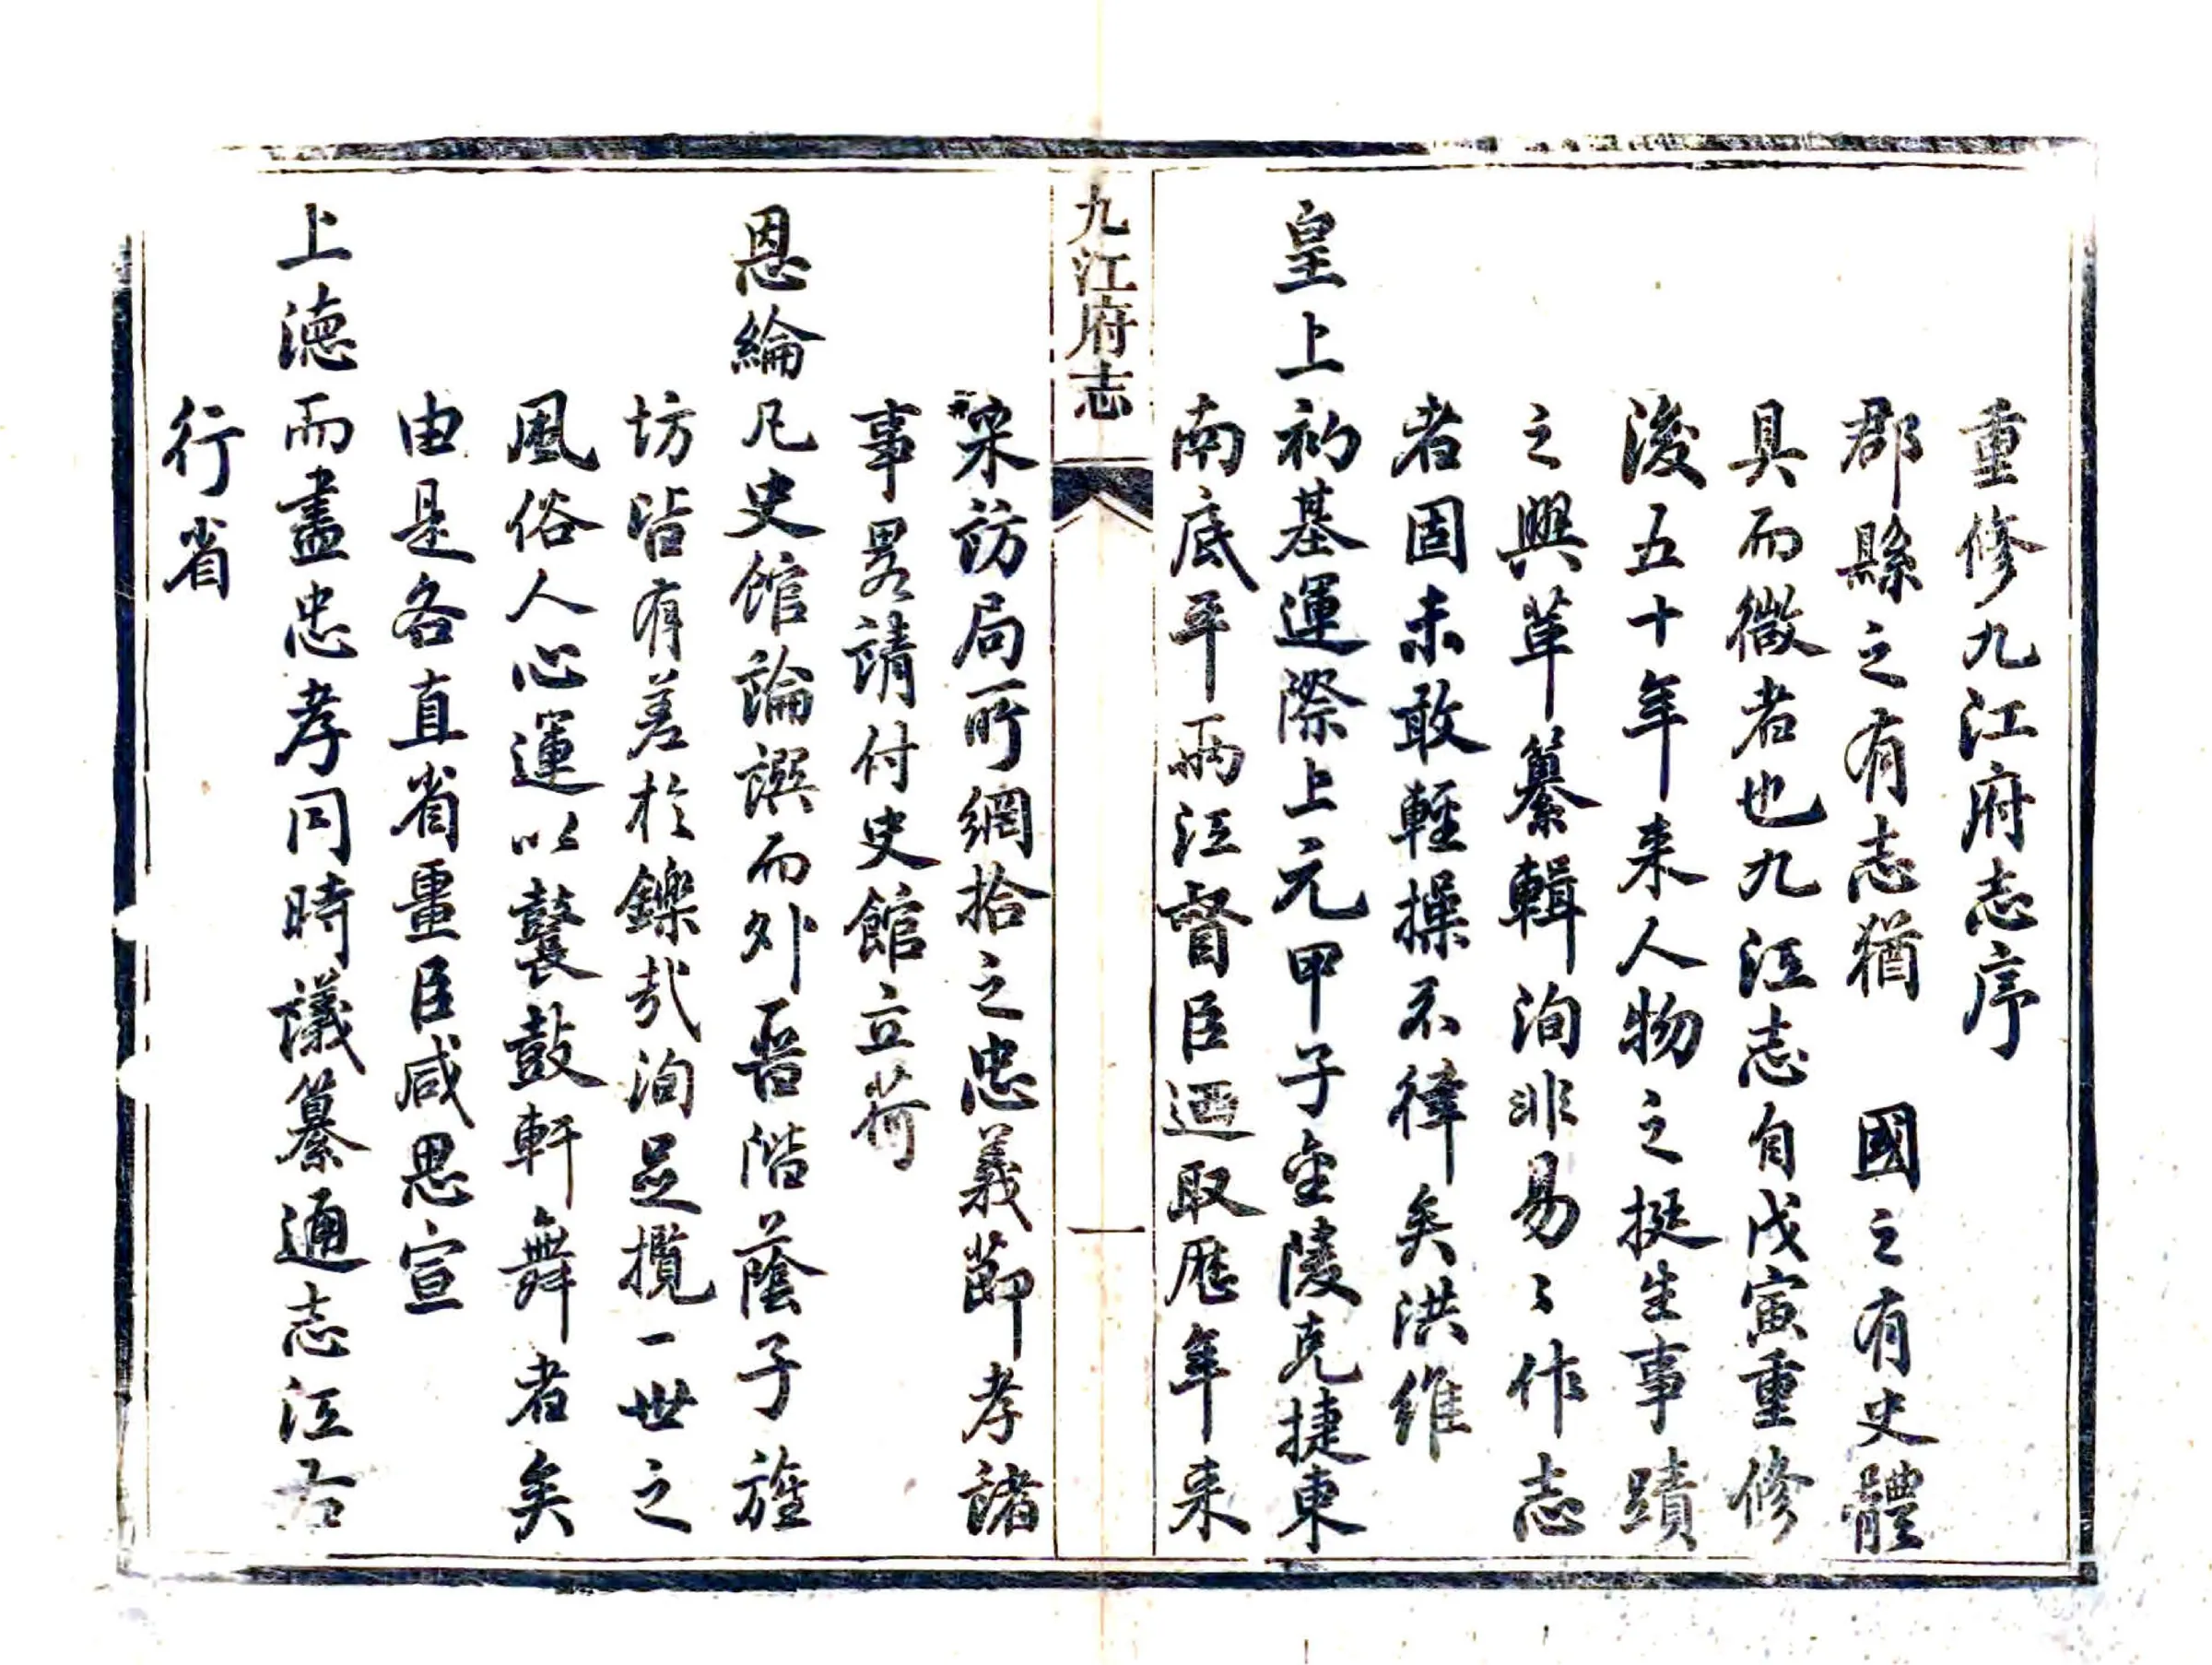 重修九江府志序
郡縣之有志猶國之有史體
具而微者也九江志自戊寅重修
後五十年来人物之挺生事蹟
之興革纂輯洵非易々作志
者固未敢輕操不律矣洪維
皇上初基運際上元甲子金陵克捷東
南底平兩江督臣迺取歷年来
九江府志
一
采訪局所網拾之忠義節孝諸
事畧請付史館立荷
恩綸凡史館論譔而外晋階蔭子旌
坊皆有差於鑠哉洵足攬一世之
風俗人心運以鼚鼓軒舞者矣
由是各直省畺臣咸思宣
上德而盡忠孝同時議纂通志江右
行省